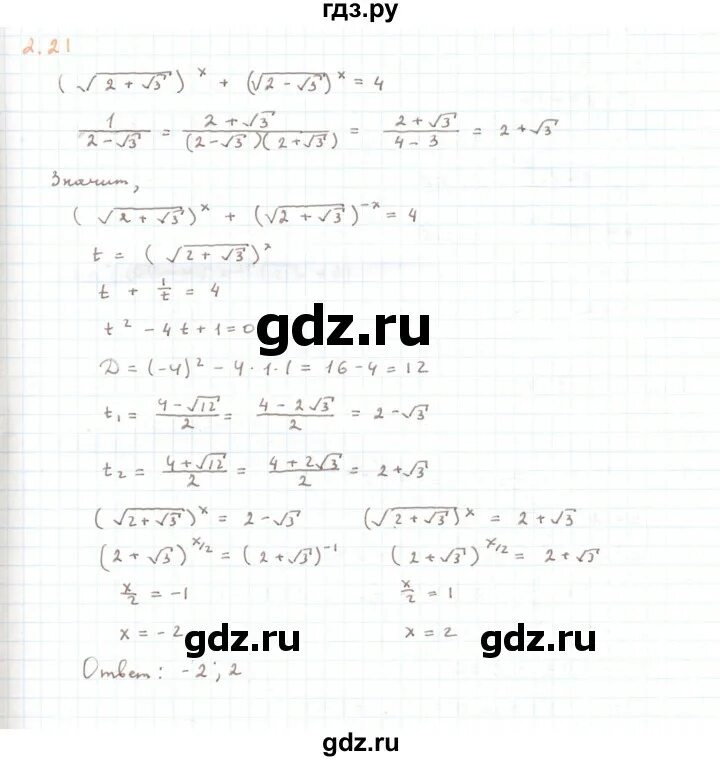 гдз.ру
2.21
(√(2 + √3))^x + (√(2 - √3))^x = 4
1/(2 - √3) = (2 + √3)/((2 - √3)(2 + √3)) = (2 + √3)/(4 - 3) = 2 + √3
Значит,
(√(2 + √3))^x + (√(2 + √3))^(-x) = 4
t = (√(2 + √3))^x
t + 1/t = 4
gdz.ru
t² - 4t + 1 = 0
D = (-4)² - 4·1·1 = 16 - 4 = 12
t₁ = (4 - √12)/2 = (4 - 2√3)/2 = 2 - √3
t₂ = (4 + √12)/2 = (4 + 2√3)/2 = 2 + √3
(√(2 + √3))^x = 2 - √3 (√(2 + √3))^x = 2 + √3
(2 + √3)^(x/2) = (2 + √3)^(-1) (2 + √3)^(x/2) = 2 + √3
x/2 = -1 x/2 = 1
x = -2 x = 2
gdz.ru gdz.ru
Ответ: -2; 2
gdz.ru